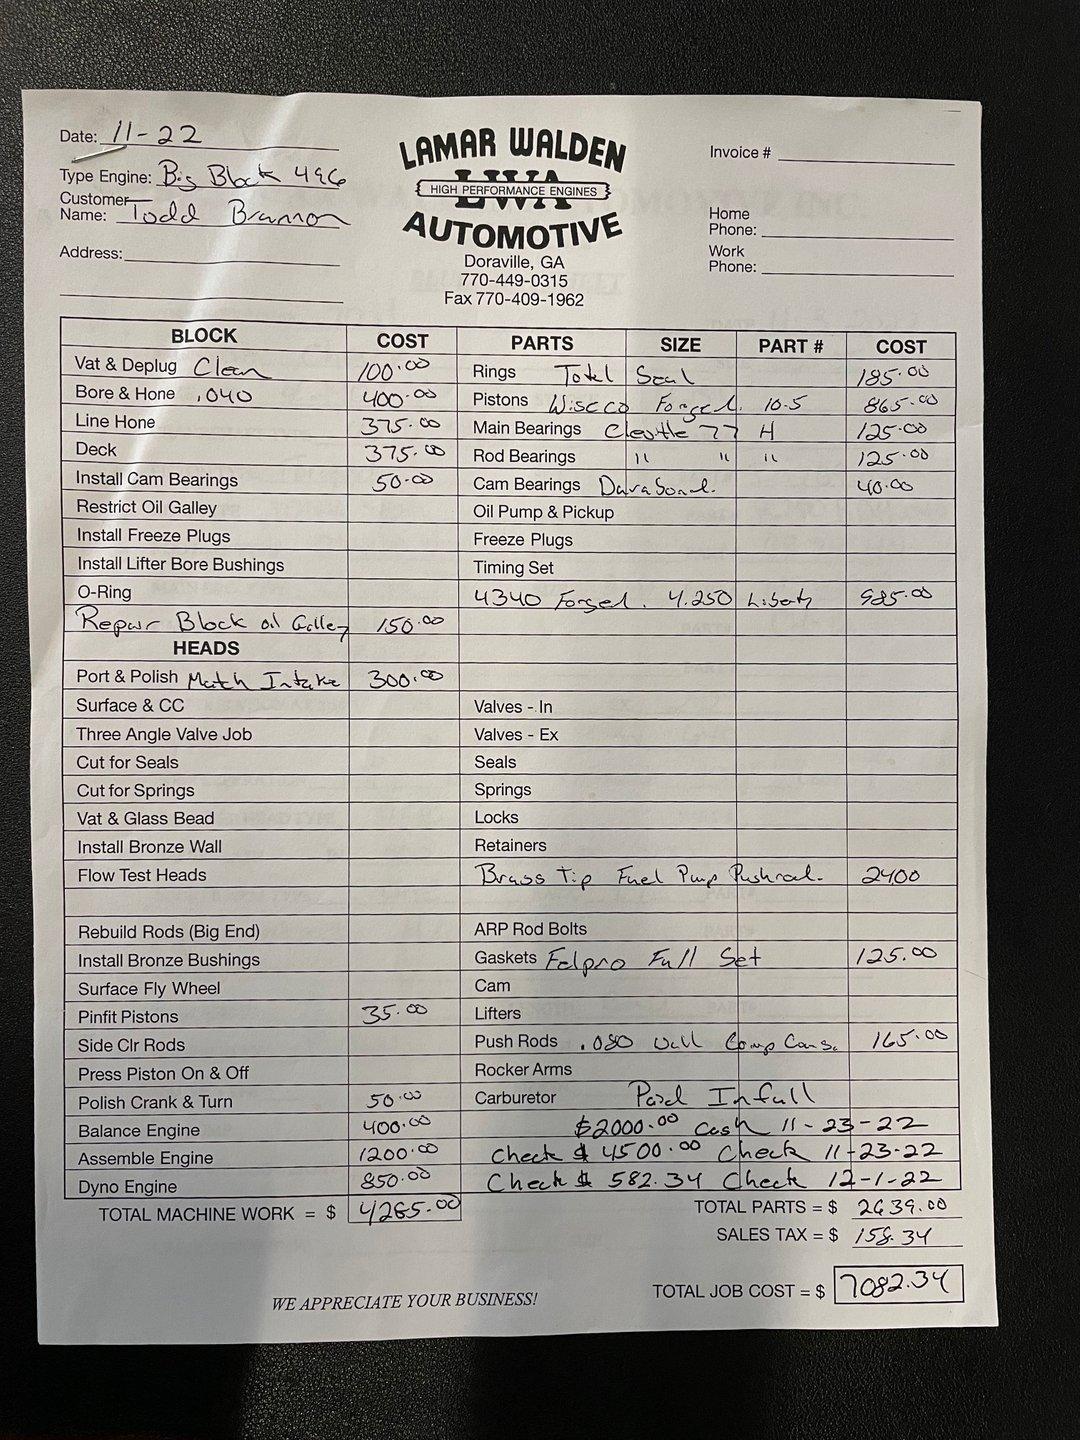 Date: 11-22
Type Engine: Big Block 496
Customer Name: Todd Brannon
Address:
LAMAR WALDEN
LWA
HIGH PERFORMANCE ENGINES
AUTOMOTIVE
Doraville, GA
770-449-0315
Fax 770-409-1962
Invoice #
Home Phone:
Work Phone:
BLOCK COST PARTS SIZE PART # COST
Vat & Deplug Clean 100.00 Rings Total Seal 185.00
Bore & Hone .040 400.00 Pistons Wiseco Forged. 10.5 865.00
Line Hone 375.00 Main Bearings Clevitte 77 H 125.00
Deck 375.00 Rod Bearings " " " 125.00
Install Cam Bearings 50.00 Cam Bearings Durabond. 40.00
Restrict Oil Galley Oil Pump & Pickup
Install Freeze Plugs Freeze Plugs
Install Lifter Bore Bushings Timing Set
O-Ring 4340 Forged. 4.250 Liberty 985.00
Repair Block oil Galley 150.00
HEADS
Port & Polish Match Intake 300.00
Surface & CC Valves - In
Three Angle Valve Job Valves - Ex
Cut for Seals Seals
Cut for Springs Springs
Vat & Glass Bead Locks
Install Bronze Wall Retainers
Flow Test Heads Brass Tip Fuel Pump Pushrod. 2400
Rebuild Rods (Big End) ARP Rod Bolts
Install Bronze Bushings Gaskets Felpro Full Set 125.00
Surface Fly Wheel Cam
Pinfit Pistons 35.00 Lifters
Side Clr Rods Push Rods .080 Wall Comp Cams. 165.00
Press Piston On & Off Rocker Arms
Polish Crank & Turn 50.00 Carburetor Paid In full
Balance Engine 400.00 $2000.00 Cash 11-23-22
Assemble Engine 1200.00 Check $ 4500.00 Check 11-23-22
Dyno Engine 850.00 Check $ 582.34 Check 12-1-22
TOTAL MACHINE WORK = $ 4285.00 TOTAL PARTS = $ 2639.00
SALES TAX = $ 158.34
WE APPRECIATE YOUR BUSINESS! TOTAL JOB COST = $ 7082.34